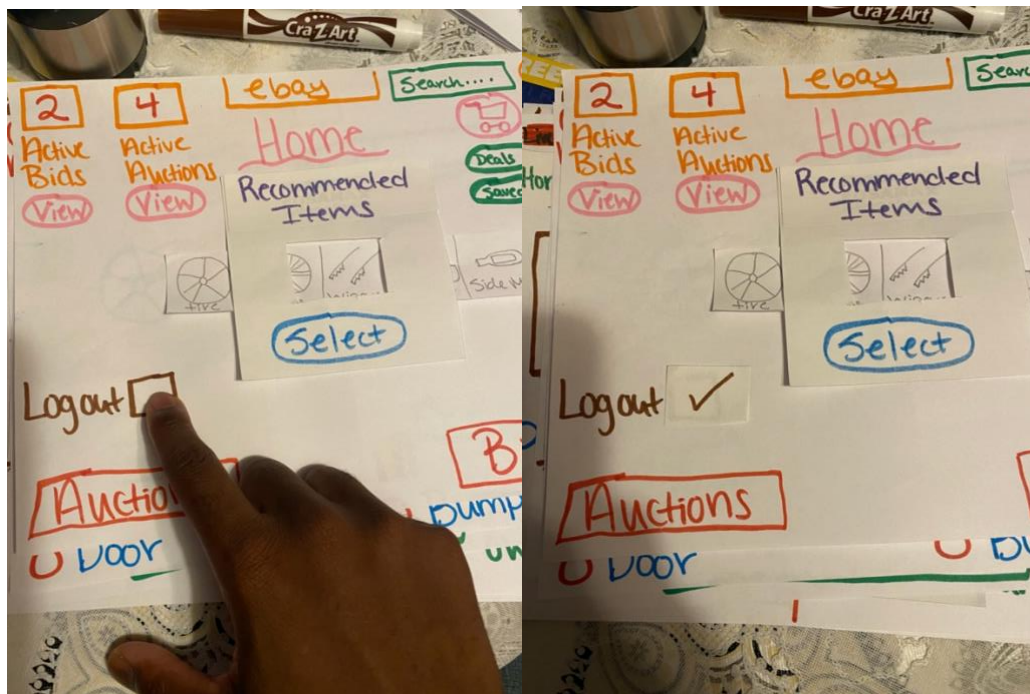 Cra-Z-Art
2 4 ebay Search....
Active Bids
Active Auctions
Home
View View
Deals
Saved
Recommended
Items
tire
Side
Select
Logout
Auctio
B
Door
Dump
un
Cra-Z-Art
2 4 ebay Searc
Active Bids
Active Auctions
Home
View View
Recommended
Items
tire
Select
Logout
Auctions
Door